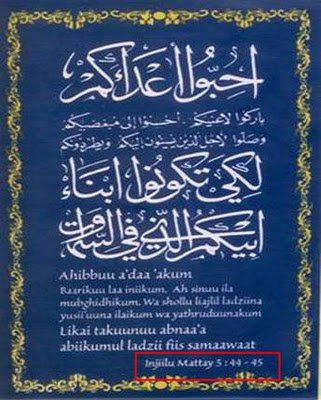 احبّوا أعداءكم
باركوا لاعنيكم. أحسنوا إلى مبغضيكم
وصلّوا لأجل الذين يسيئون إليكم ويطردونكم
لكي تكونوا ابناء
ابيكم الذي في السموات
Ahibbuu a'daa 'akum
Baarikuu laa iniikum. Ah sinuu ila
mubghidhikum. Wa shollu liajlil ladziina
yusii'uuna ilaikum wa yathruduunakum
Likai takuunuu abnaa'a
abiikumul ladzii fiis samaawaat
Injiilu Mattay 5 : 44 - 45